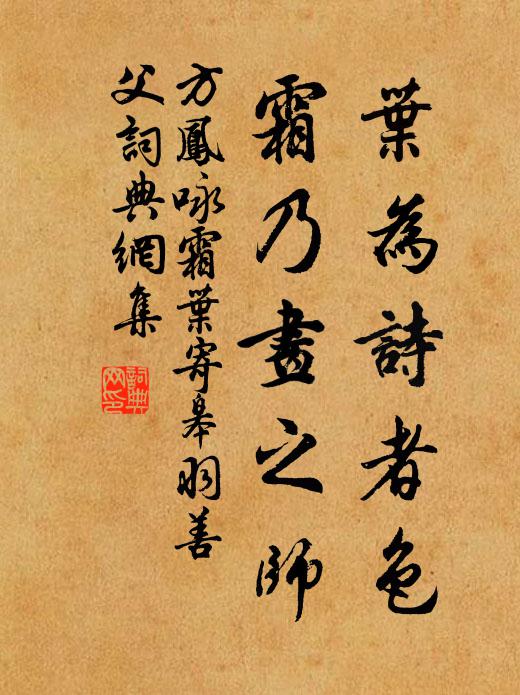 葉為詩者色
霜乃畫之師
方鳳咏霜葉寄皋羽善
父詞典網集
詞典
网印